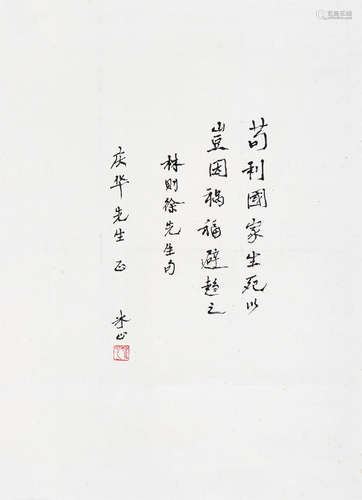 苟利國家生死以
豈因禍福避趨之
林则徐先生句
庆华先生正
冰心